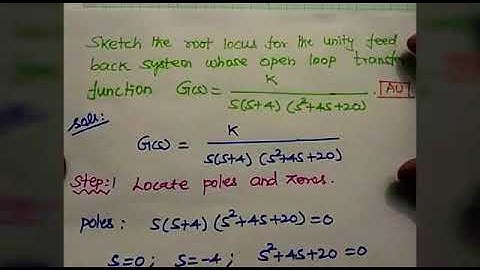 Sketch the root locus for the unity feed
back system whose open loop
function G(s) = K / S(S+4) (S²+4S+20) . AU
Soln:
G(s) = K / S(S+4) (S²+4S+20)
Step:1 Locate poles and zeros.
Poles: S(S+4) (S²+4S+20) = 0
S=0 ; S=-4 ; S²+4S+20 = 0